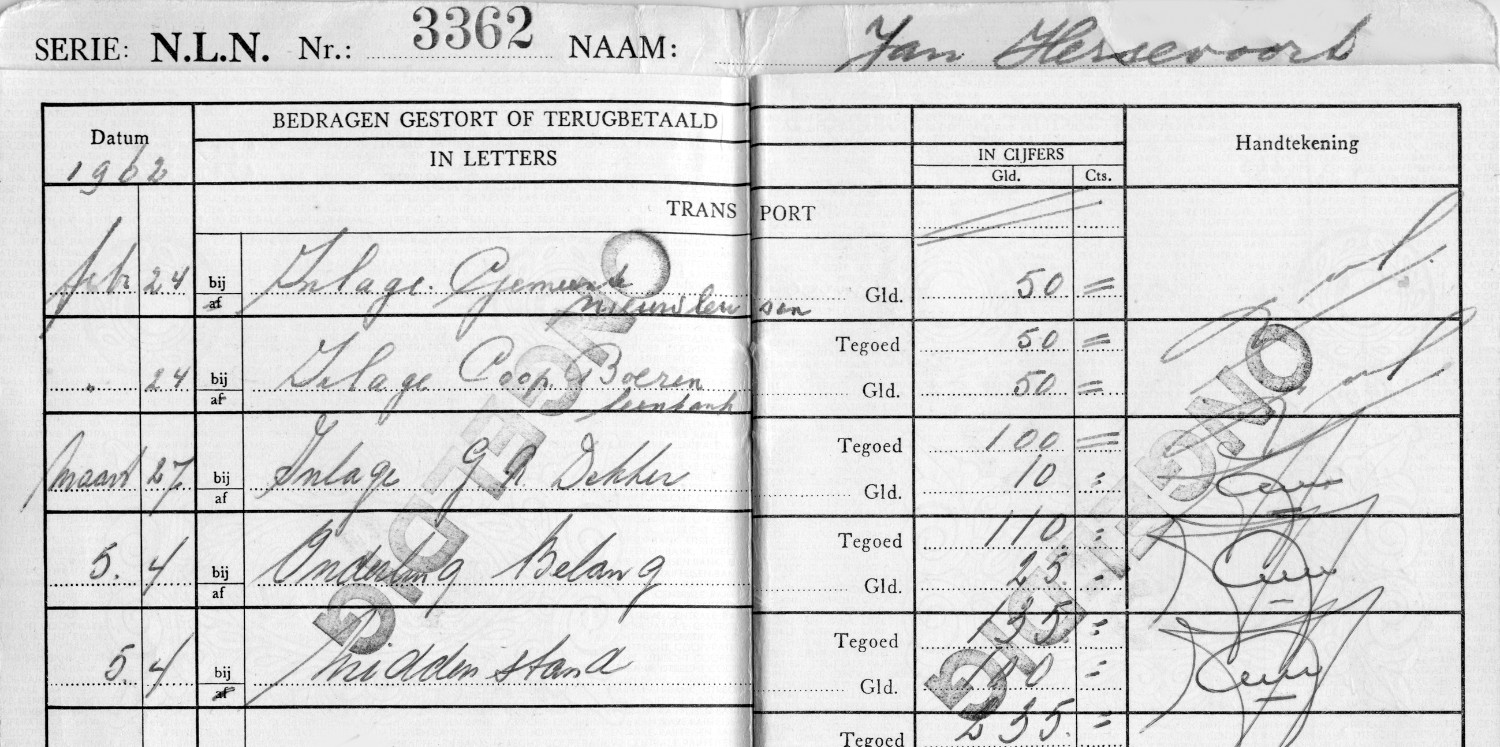 SERIE: N.L.N. Nr.: 3362 NAAM: Jan Hersevoort
Datum
1962
BEDRAGEN GESTORT OF TERUGBETAALD
IN LETTERS
IN CIJFERS
Gld. Cts.
Handtekening
TRANSPORT
febr 24 bij af Inlage. Gemeente Gld. 50 =
nieuwleusen
Tegoed 50 =
" 24 bij af Inlage Coop. Boeren Gld. 50 =
leenbank
Tegoed 100 =
Maart 27 bij af Inlage G Dekker Gld. 10 =
Tegoed 110 =
5. 4 bij af Onderling Belang Gld. 25. =
Tegoed 135 =
5. 4 bij af Middenstand Gld. 100 =
Tegoed 235. =
ONGELDIG
ONGELDIG